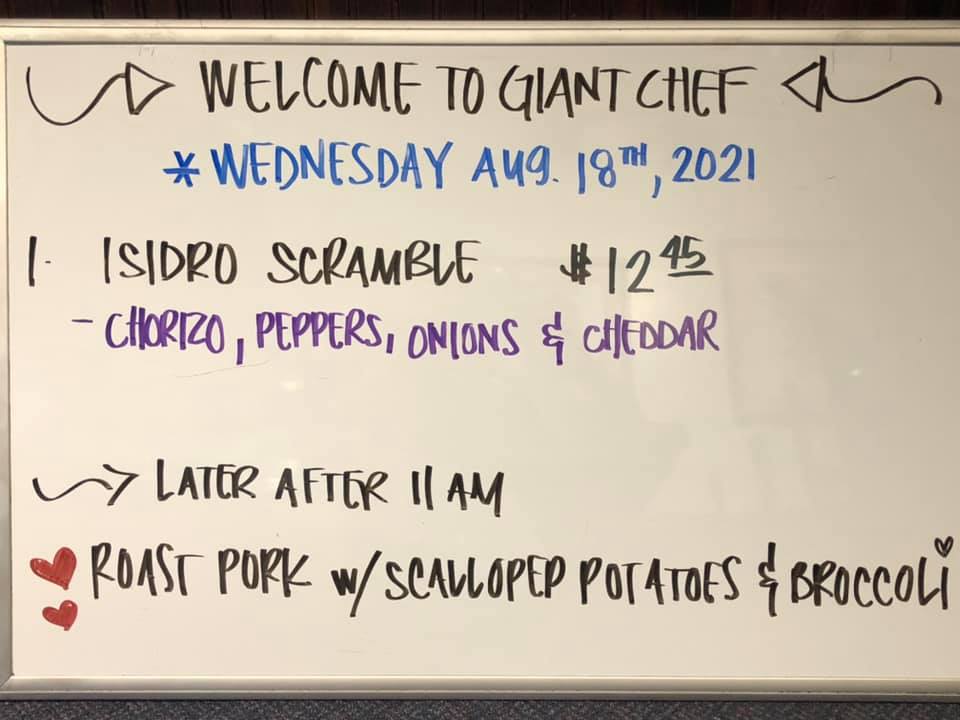 WELCOME TO GIANT CHEF
* WEDNESDAY AUG. 18TH, 2021
1. ISIDRO SCRAMBLE $12 45
- CHORIZO, PEPPERS, ONIONS & CHEDDAR
LATER AFTER 11 AM
ROAST PORK w/ SCALLOPED POTATOES & BROCCOLI